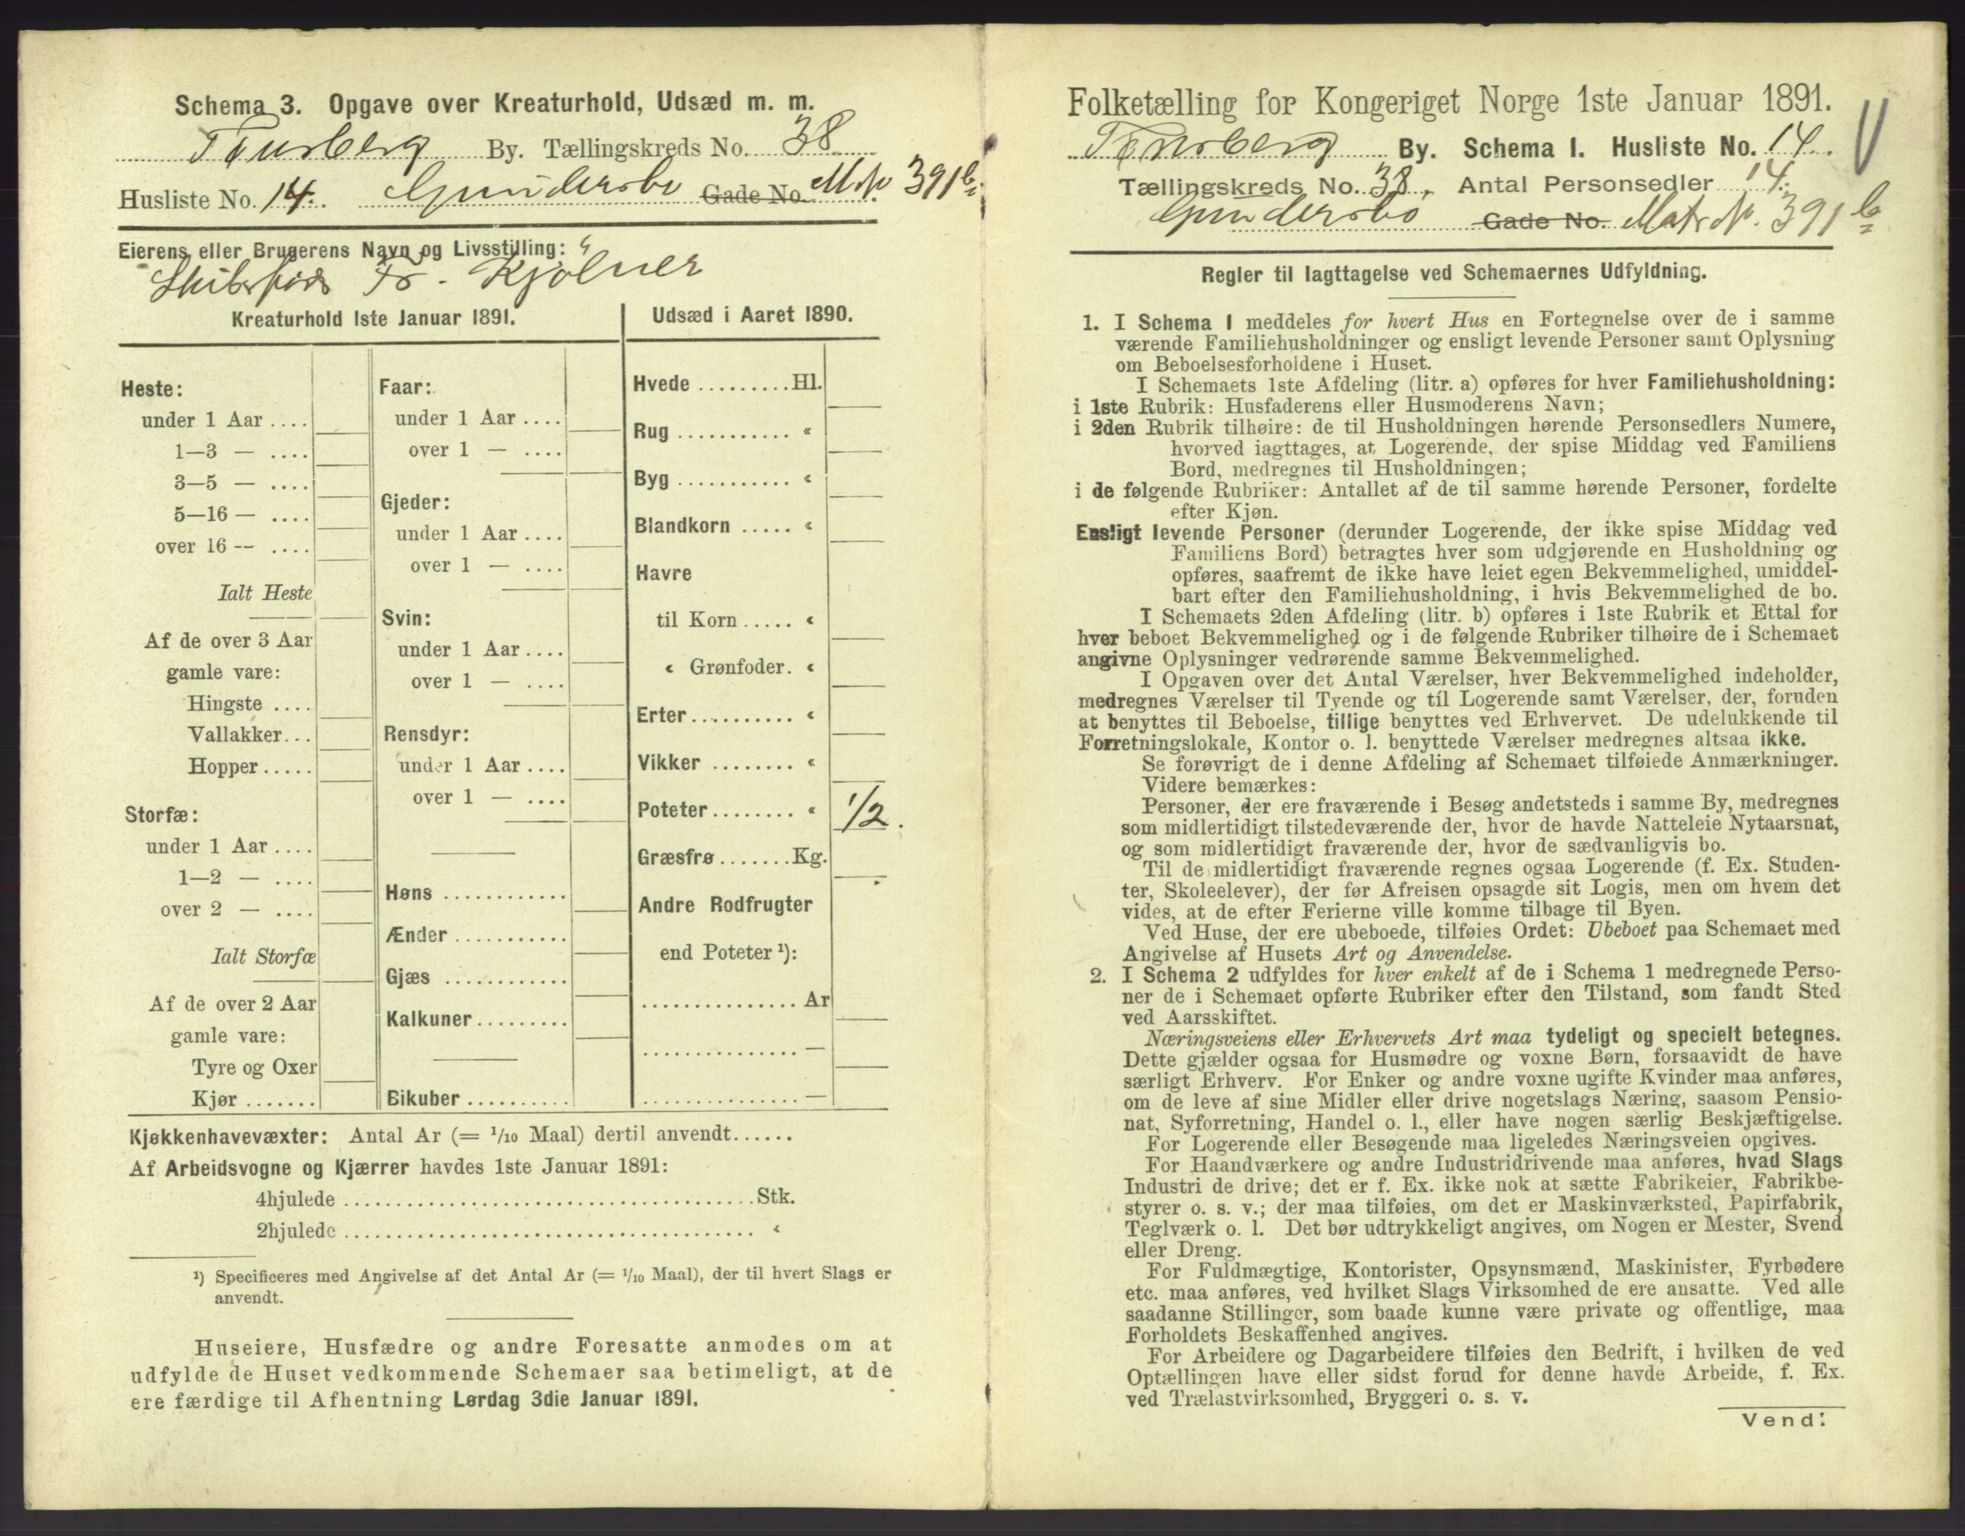 Schema 3. Opgave over Kreaturhold, Udsæd m. m.
Tønsberg By. Tællingskreds No. 38
Husliste No. 14. Gundersbø Gade No. M. No. 391b
Eierens eller Brugerens Navn og Livsstilling:
Fr. Kjølner
Kreaturhold 1ste Januar 1891.
Udsæd i Aaret 1890.
Heste:
under 1 Aar ....
1—3 — ....
3—5 — ....
5—16 — ....
over 16 -- ....
Ialt Heste
Af de over 3 Aar
gamle vare:
Hingste ....
Vallakker...
Hopper.....
Storfæ:
under 1 Aar ....
1—2 — ....
over 2 — ....
Ialt Storfæ
Af de over 2 Aar
gamle vare:
Tyre og Oxer
Kjør.......
Faar:
under 1 Aar ....
over 1 — ....
Gjeder:
under 1 Aar ....
over 1 — ....
Svin:
under 1 Aar ....
over 1 — ....
Rensdyr:
under 1 Aar ....
over 1 — ....
Høns ............
Ænder...........
Gjæs ............
Kalkuner.........
Bikuber ..........
Hvede .........Hl.
Rug ........... «
Byg ........... «
Blandkorn ..... «
Havre
til Korn ..... «
« Grønfoder. «
Erter.......... «
Vikker ........ «
Poteter........ « 1/2.
Græsfrø.......Kg.
Andre Rodfrugter
end Poteter ¹):
...............Ar
............... —
............... —
Kjøkkenhavevæxter: Antal Ar (= 1/10 Maal) dertil anvendt......
Af Arbeidsvogne og Kjærrer havdes 1ste Januar 1891:
4hjulede ........................................Stk.
2hjulede ........................................ «
¹) Specificeres med Angivelse af det Antal Ar (= 1/10 Maal), der til hvert Slags er
anvendt.
Huseiere, Husfædre og andre Foresatte anmodes om at
udfylde de Huset vedkommende Schemaer saa betimeligt, at de
ere færdige til Afhentning Lørdag 3die Januar 1891.
Folketælling for Kongeriget Norge 1ste Januar 1891.
Tønsberg By. Schema I. Husliste No. 14.
Tællingskreds No. 38. Antal Personsedler 14.
Gundersbø Gade No. Matr No. 391b
Regler til Iagttagelse ved Schemaernes Udfyldning.
1. I Schema 1 meddeles for hvert Hus en Fortegnelse over de i samme
værende Familiehusholdninger og ensligt levende Personer samt Oplysning
om Beboelsesforholdene i Huset.
I Schemaets 1ste Afdeling (litr. a) opføres for hver Familiehusholdning:
i 1ste Rubrik: Husfaderens eller Husmoderens Navn;
i 2den Rubrik tilhøire: de til Husholdningen hørende Personsedlers Numere,
hvorved iagttages, at Logerende, der spise Middag ved Familiens
Bord, medregnes til Husholdningen;
i de følgende Rubriker: Antallet af de til samme hørende Personer, fordelte
efter Kjøn.
Ensligt levende Personer (derunder Logerende, der ikke spise Middag ved
Familiens Bord) betragtes hver som udgjørende en Husholdning og
opføres, saafremt de ikke have leiet egen Bekvemmelighed, umiddel-
bart efter den Familiehusholdning, i hvis Bekvemmelighed de bo.
I Schemaets 2den Afdeling (litr. b) opføres i 1ste Rubrik et Ettal for
hver beboet Bekvemmelighed og i de følgende Rubriker tilhøire de i Schemaet
angivne Oplysninger vedrørende samme Bekvemmelighed.
I Opgaven over det Antal Værelser, hver Bekvemmelighed indeholder,
medregnes Værelser til Tyende og til Logerende samt Værelser, der, foruden
at benyttes til Beboelse, tillige benyttes ved Erhvervet. De udelukkende til
Forretningslokale, Kontor o. l. benyttede Værelser medregnes altsaa ikke.
Se forøvrigt de i denne Afdeling af Schemaet tilføiede Anmærkninger.
Videre bemærkes:
Personer, der ere fraværende i Besøg andetsteds i samme By, medregnes
som midlertidigt tilstedeværende der, hvor de havde Natteleie Nytaarsnat,
og som midlertidigt fraværende der, hvor de sædvanligvis bo.
Til de midlertidigt fraværende regnes ogsaa Logerende (f. Ex. Studen-
ter, Skoleelever), der før Afreisen opsagde sit Logis, men om hvem det
vides, at de efter Ferierne ville komme tilbage til Byen.
Ved Huse, der ere ubeboede, tilføies Ordet: Ubeboet paa Schemaet med
Angivelse af Husets Art og Anvendelse.
2. I Schema 2 udfyldes for hver enkelt af de i Schema 1 medregnede Perso-
ner de i Schemaet opførte Rubriker efter den Tilstand, som fandt Sted
ved Aarsskiftet.
Næringsveiens eller Erhvervets Art maa tydeligt og specielt betegnes.
Dette gjælder ogsaa for Husmødre og voxne Børn, forsaavidt de have
særligt Erhverv. For Enker og andre voxne ugifte Kvinder maa anføres,
om de leve af sine Midler eller drive nogetslags Næring, saasom Pensio-
nat, Syforretning, Handel o. l., eller have nogen særlig Beskjæftigelse.
For Logerende eller Besøgende maa ligeledes Næringsveien opgives.
For Haandværkere og andre Industridrivende maa anføres, hvad Slags
Industri de drive; det er f. Ex. ikke nok at sætte Fabrikeier, Fabrikbe-
styrer o. s. v.; der maa tilføies, om det er Maskinværksted, Papirfabrik,
Teglværk o. l. Det bør udtrykkeligt angives, om Nogen er Mester, Svend
eller Dreng.
For Fuldmægtige, Kontorister, Opsynsmænd, Maskinister, Fyrbødere
etc. maa anføres, ved hvilket Slags Virksomhed de ere ansatte. Ved alle
saadanne Stillinger, som baade kunne være private og offentlige, maa
Forholdets Beskaffenhed angives.
For Arbeidere og Dagarbeidere tilføies den Bedrift, i hvilken de ved
Optællingen have eller sidst forud for denne havde Arbeide, f. Ex.
ved Trælastvirksomhed, Bryggeri o. s. v.
Vend!